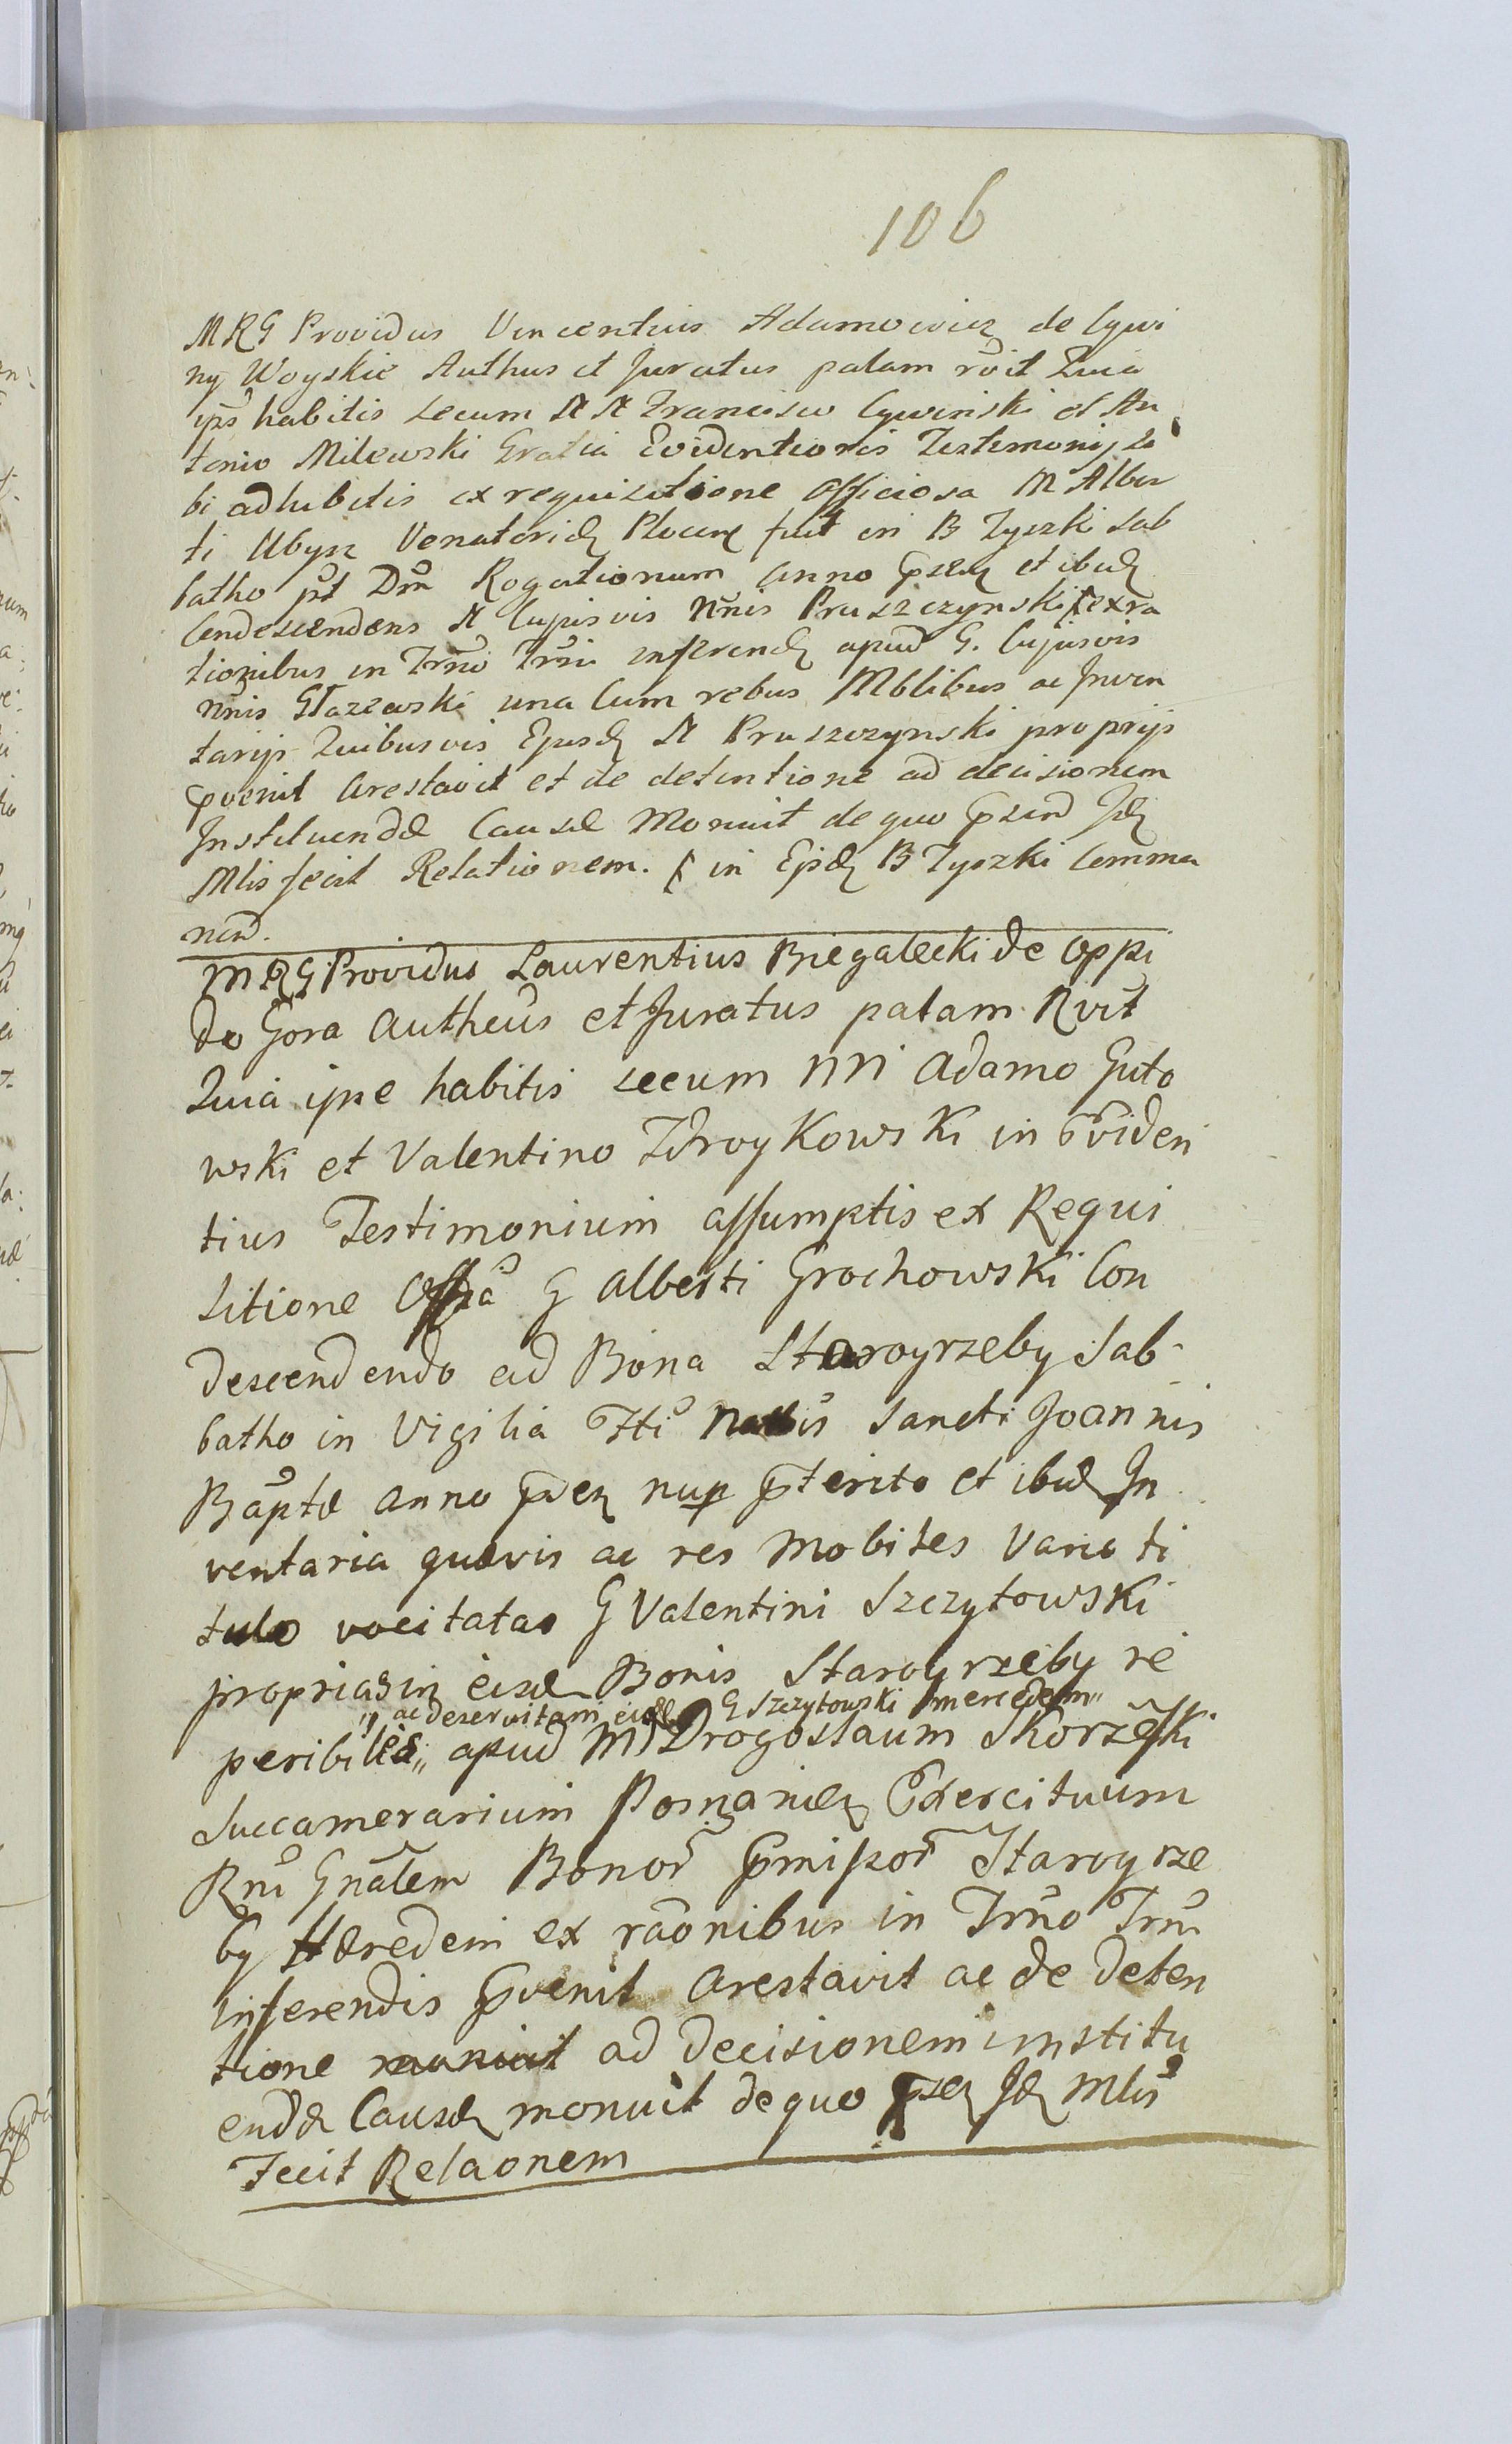 106
MRG Providus Vincentius Adamowicz de Cywi
ny Woyskie Authus et Juratus palam rvit Quia
ips habitis secum NN Francisco Cywinski et An
tonio Milewski Gratia Evidentioris Testimonij si
bi adhibitis ex requisitione officiosa M Alber
ti Ubysz Venatorid Plocen fuit in B Tyszki Sab
batho pt Dni Rogationum anno pzen et ibid
Condescendens N Cujusvis Nnis Pruszczynski ex ra
tionibus in Trno Trni inferend apud G. Cujusvis
nnis Głazewski una Cum rebus Mblibus ac Inven
tarijs Quibusvis Ejusd N Pruszczynski proprijs
pvenit arestavit et de detentione ad decisionem
Instituendæ Causæ Monuit de quo pzens Id
Mlis fecit Relationem. in Ejsd B Tyszki Comma
nen.
MRG Providus Laurentius Biegalecki de oppi
do Gora autheus et Juratus palam Rvit
Quia ipse habitis secum NN Adamo Guto
wski et Valentino Zdroykowski in Eviden
tius Testimonium assumptis ex Requi
sitione Offsa G Alberti Grochowski Con
descendendo ad Bona Staroyrzeby Sab
batho in Vigilia Fti Natis Sancti Joannis
Baptæ anno pzen nup pterito et ibid In
ventaria quævis ac res mobiles Vario ti
tulo vocitatas G Valentini Szczytowski
proprias in eisd Bonis Staroyrzeby re
„ac deservitam eid G Szczytowski mercedem„
peribiles„ apud M Drogoslaum Skorzeski
Succamerarium Posnaniæn Exercituum
Rni Gnalem Bonor pmissor Staroyrze
by Hæredem ex raonibus in Trno Trni
inferendis pvenit arestavit ac de deten
tione ad decisionem institu
endæ Causæ monuit de quo pzen Id Mlis
Fecit Relaonem